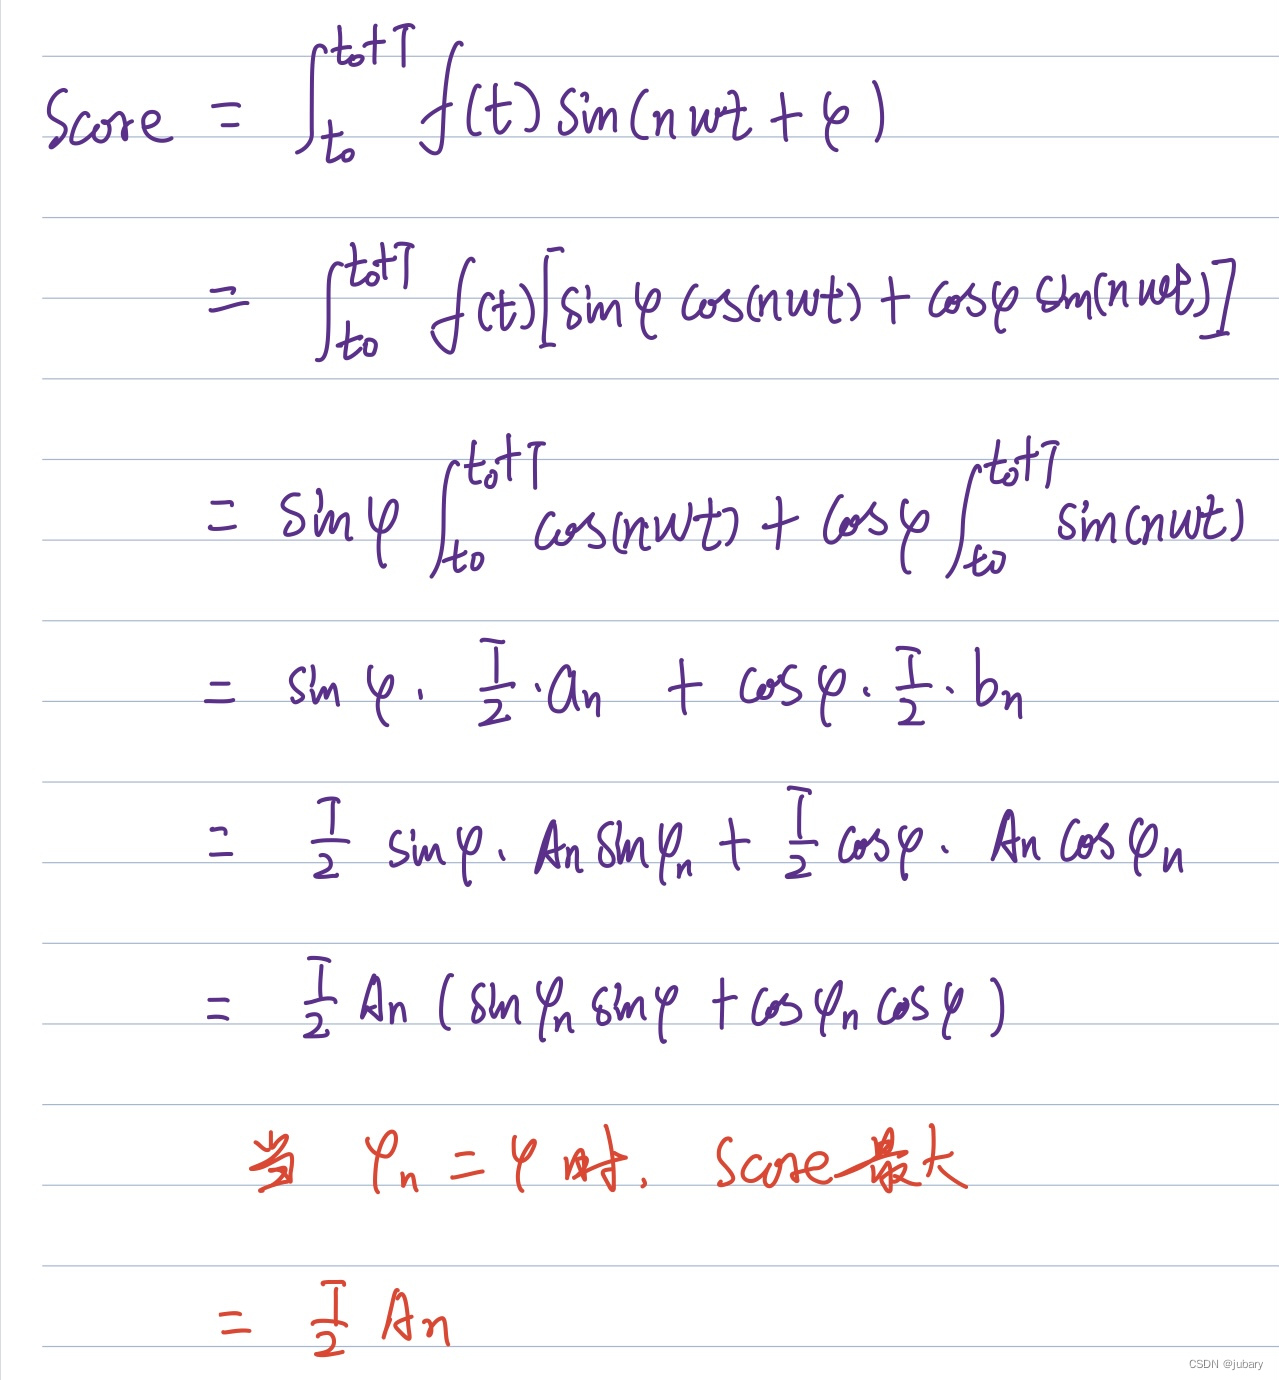 Score = ∫_{t₀}^{t₀+T} f(t) sin(nwt + φ)
= ∫_{t₀}^{t₀+T} f(t)[sinφ cos(nwt) + cosφ sin(nwt)]
= sinφ ∫_{t₀}^{t₀+T} cos(nwt) + cosφ ∫_{t₀}^{t₀+T} sin(nwt)
= sinφ · T/2 · aₙ + cosφ · T/2 · bₙ
= T/2 sinφ · Aₙ sinφₙ + T/2 cosφ · Aₙ cosφₙ
= T/2 Aₙ (sinφₙ sinφ + cosφₙ cosφ)
当 φₙ = φ 时, Score 最大
= T/2 Aₙ
CSDN @jubary